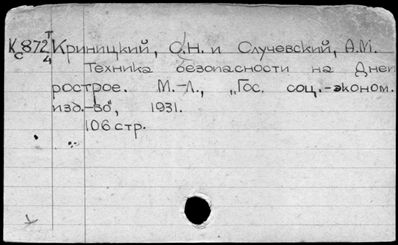 Кс872 Т/4 Криницкий, О.Н. и Случевский, А.М.
Техника безопасности на Днеп
рострое. М.-Л., „Гос. соц.-эконом.
изд.-во", 1931.
106 стр.